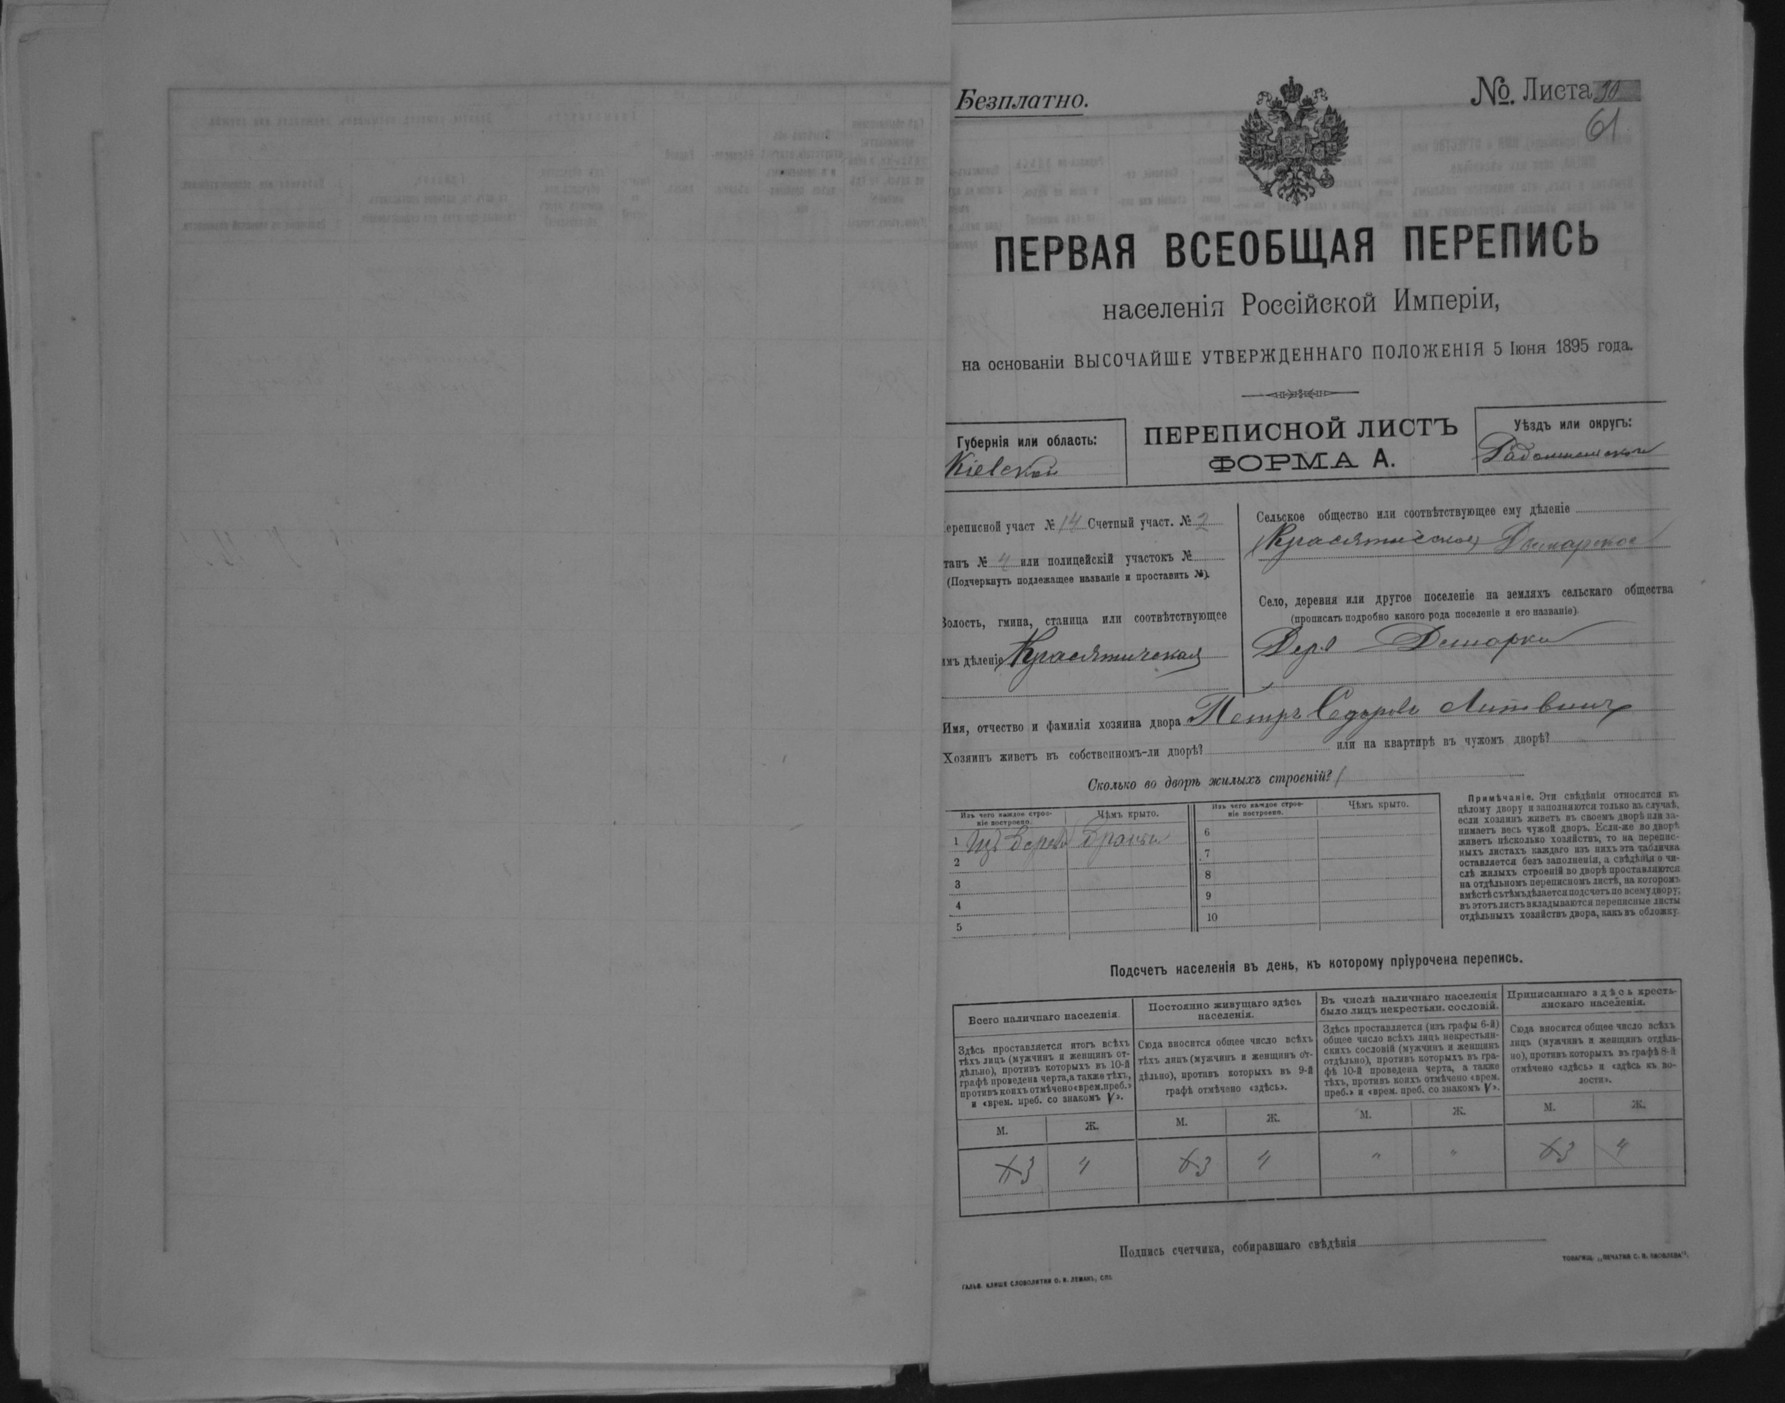 Безплатно.
№. Листа 30
61
ПЕРВАЯ ВСЕОБЩАЯ ПЕРЕПИСЬ
населенія Россійской Имперіи,
на основаніи ВЫСОЧАЙШЕ УТВЕРЖДЕННАГО ПОЛОЖЕНІЯ 5 Іюня 1895 года.
Губернія или область:
Кіевская
ПЕРЕПИСНОЙ ЛИСТЪ
ФОРМА А.
Уѣздъ или округъ:
ереписной участ № 14 Счетный участ. № 2
танъ № 4 или полицейскій участокъ №
(Подчеркнуть подлежащее названіе и проставить №).
Волость, гмина, станица или соотвѣтствующее
имъ дѣленіе Красятическая
Сельское общество или соотвѣтствующее ему дѣленіе
Село, деревня или другое поселеніе на земляхъ сельскаго общества
(прописать подробно какого рода поселеніе и его названіе)
Дер.
Имя, отчество и фамилія хозяина двора Петръ Сидоровъ Литвинъ
Хозяинъ живетъ въ собственномъ-ли дворѣ? или на квартирѣ въ чужомъ дворѣ?
Сколько во дворѣ жилыхъ строеній? 1
Изъ чего каждое строе-
ніе построено.
Чѣмъ крыто.
Изъ чего каждое строе-
ніе построено.
Чѣмъ крыто.
1 Изъ дерева
2
3
4
5
6
7
8
9
10
Примѣчаніе. Эти свѣдѣнія относятся къ
цѣлому двору и заполняются только въ случаѣ,
если хозяинъ живетъ въ своемъ дворѣ или за-
нимаетъ весь чужой дворъ. Если-же во дворѣ
живетъ нѣсколько хозяйствъ, то на перепис-
ныхъ листахъ каждаго изъ нихъ эта табличка
оставляется безъ заполненія, а свѣдѣнія о чи-
слѣ жилыхъ строеній во дворѣ проставляются
на отдѣльномъ переписномъ листѣ, на которомъ
вмѣстѣ съ тѣмъ дѣлается подсчетъ по всему двору;
въ этотъ листъ вкладываются переписные листы
отдѣльныхъ хозяйствъ двора, какъ въ обложку.
Подсчетъ населенія въ день, къ которому пріурочена перепись.
Всего наличнаго населенія.
Здѣсь проставляется итогъ всѣхъ
тѣхъ лицъ (мужчинъ и женщинъ от-
дѣльно), противъ которыхъ въ 10-й
графѣ проведена черта, а также тѣхъ,
противъ коихъ отмѣчено «врем. преб.»
и «врем. преб. со знакомъ V».
М. Ж.
3 4
Постоянно живущаго здѣсь
населенія.
Сюда вносится общее число всѣхъ
тѣхъ лицъ (мужчинъ и женщинъ от-
дѣльно), противъ которыхъ въ 9-й
графѣ отмѣчено «здѣсь».
М. Ж.
3 4
Въ числѣ наличнаго населенія
было лицъ некрестьян. сословій.
Здѣсь проставляется (изъ графы 6-й)
общее число всѣхъ лицъ некрестьян-
скихъ сословій (мужчинъ и женщинъ
отдѣльно), противъ которыхъ въ гра-
фѣ 10-й проведена черта, а также
тѣхъ, противъ коихъ отмѣчено «врем.
преб.» и «врем. преб. со знакомъ V».
М. Ж.
" "
Приписаннаго здѣсь кресть-
янскаго населенія.
Сюда вносится общее число всѣхъ
лицъ (мужчинъ и женщинъ отдѣль-
но), противъ которыхъ въ графѣ 8-й
отмѣчено «здѣсь» и «здѣсь къ во-
лости».
М. Ж.
3 4
Подпись счетчика, собиравшаго свѣдѣнія
ГАЛЬВ. КЛИШЕ СЛОВОЛИТНИ О. И. ЛЕМАНЪ, СПБ.
ТОВАРИЩ. „ПЕЧАТНЯ С. П. ЯКОВЛЕВА“.